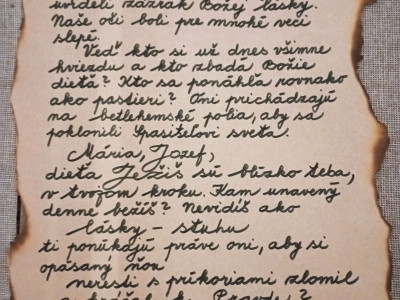 uvideli zázrak Božej lásky.
Naše oči boli pre mnohé veci
slepé.
Veď kto si už dnes všimne
hviezdu a kto zbadá Božie
dieťa? Kto sa ponáhľa rovnako
ako pastieri? Oni prichádzajú
na betlehemské polia, aby sa
poklonili Spasiteľovi sveta.
Mária, Jozef,
dieťa Ježiš sú blízko teba,
v tvojom kroku. Kam unavený
denne bežíš? Nevidíš ako
lásky - stuhu
ti ponúkajú práve oni, aby si
opásaný ňou
neresti s príkoriami zlomil
a kráčal k Pravde?